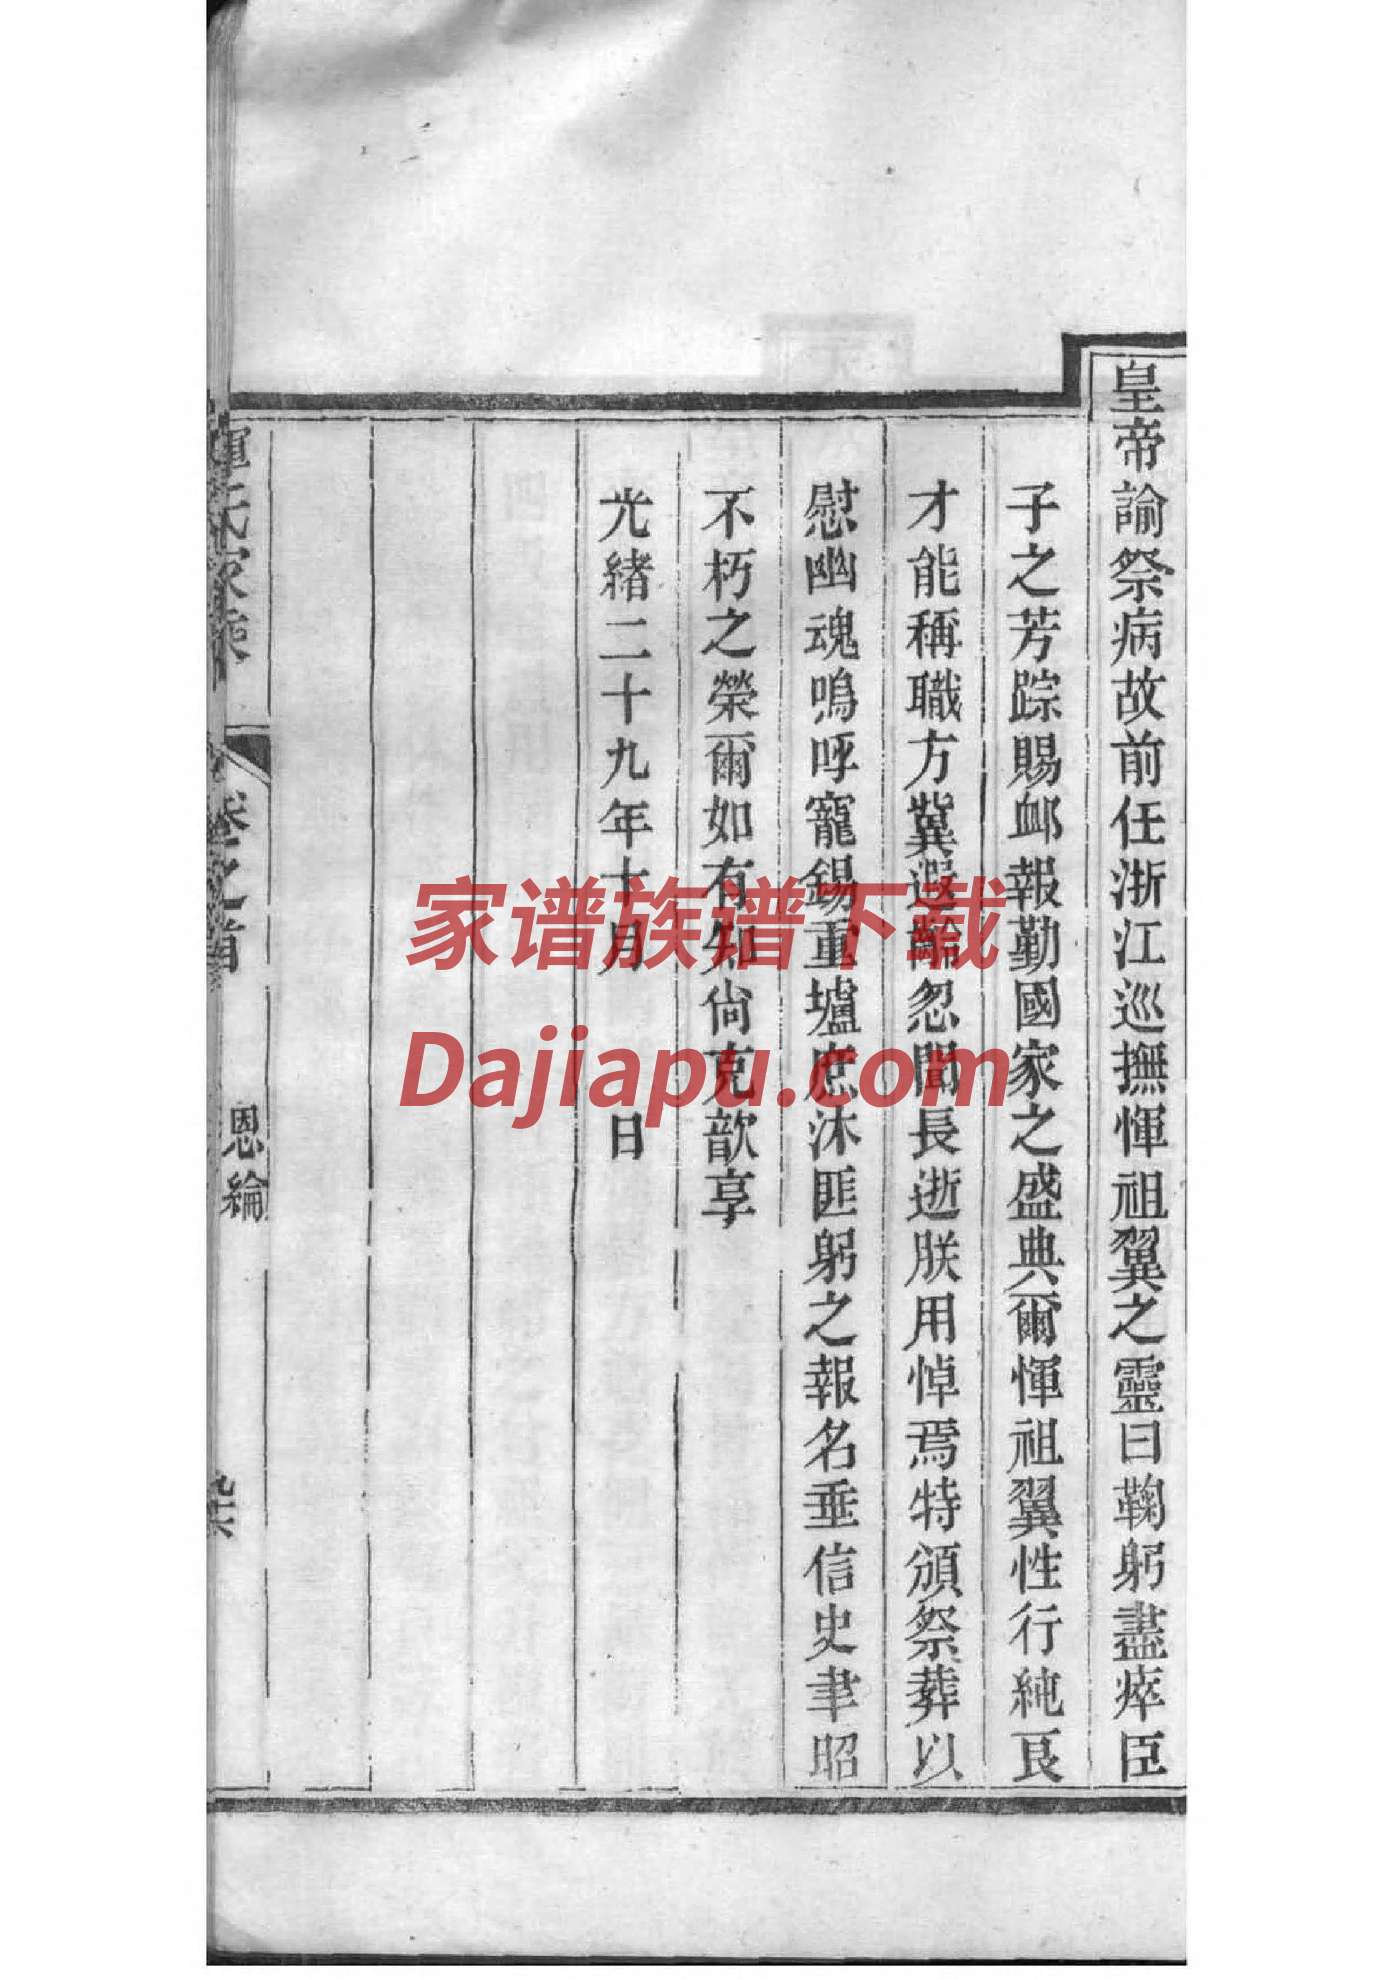 皇帝諭祭病故前任浙江巡撫惲祖翼之靈曰鞠躬盡瘁臣
子之芳踪賜卹報勤國家之盛典爾惲祖翼性行純良
才能稱職方冀遐齡忽聞長逝朕用悼焉特頒祭葬以
慰幽魂嗚呼寵錫重壚庶沐匪躬之報名垂信史聿昭
不朽之榮爾如有知尚克歆享
光緒二十九年十月 日
惲氏家乘 卷之首 恩綸
家谱族谱下载
Dajiapu.com